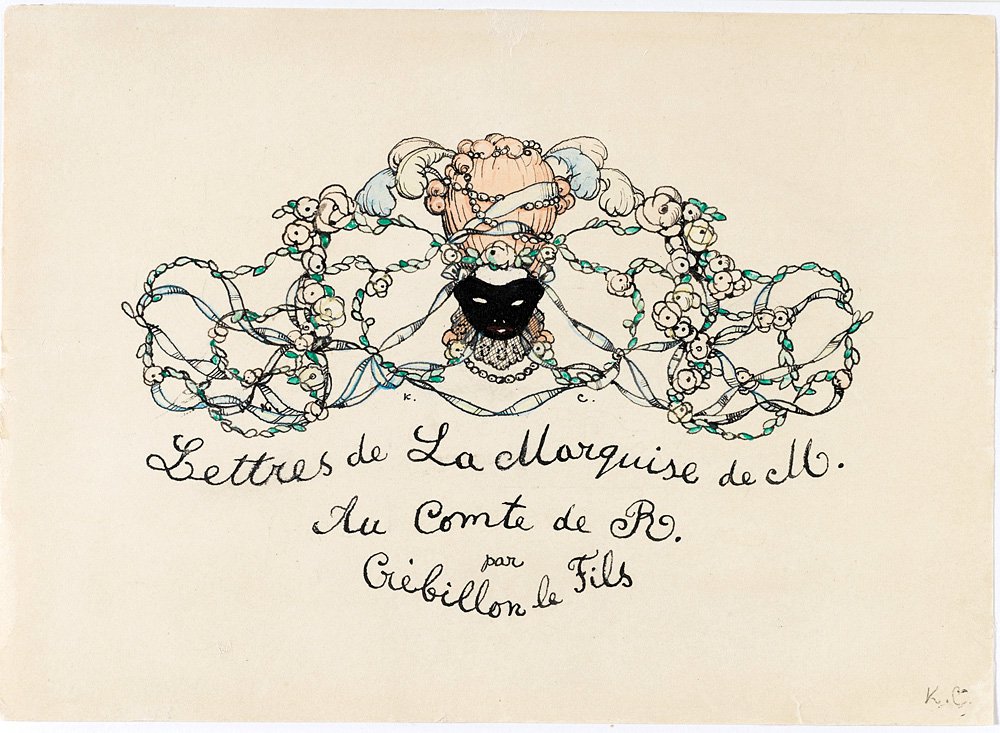 K. C.
Lettres de La Marquise de M.
Au Comte de R.
par
Crébillon le Fils
K. C.